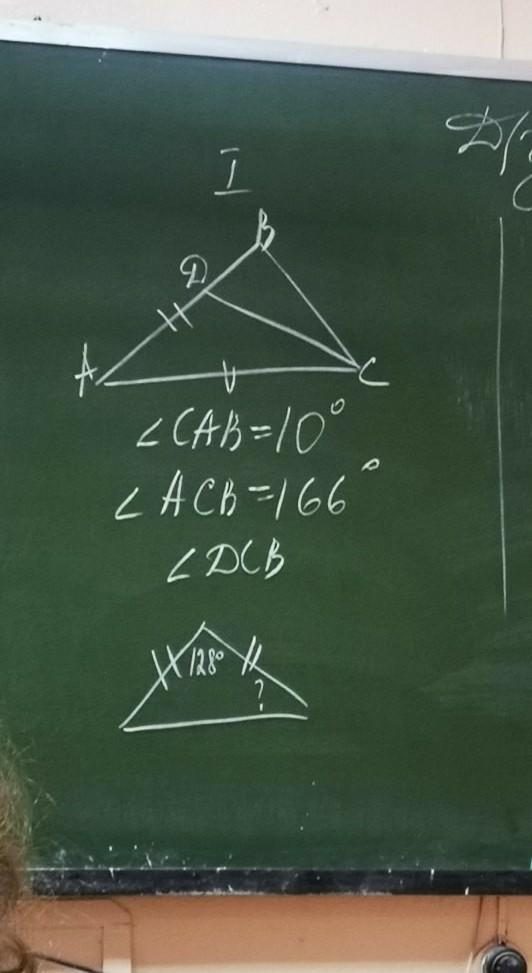 I
B
D
A
C
∠CAB=10°
∠ACB=166°
∠DCB
128°
?